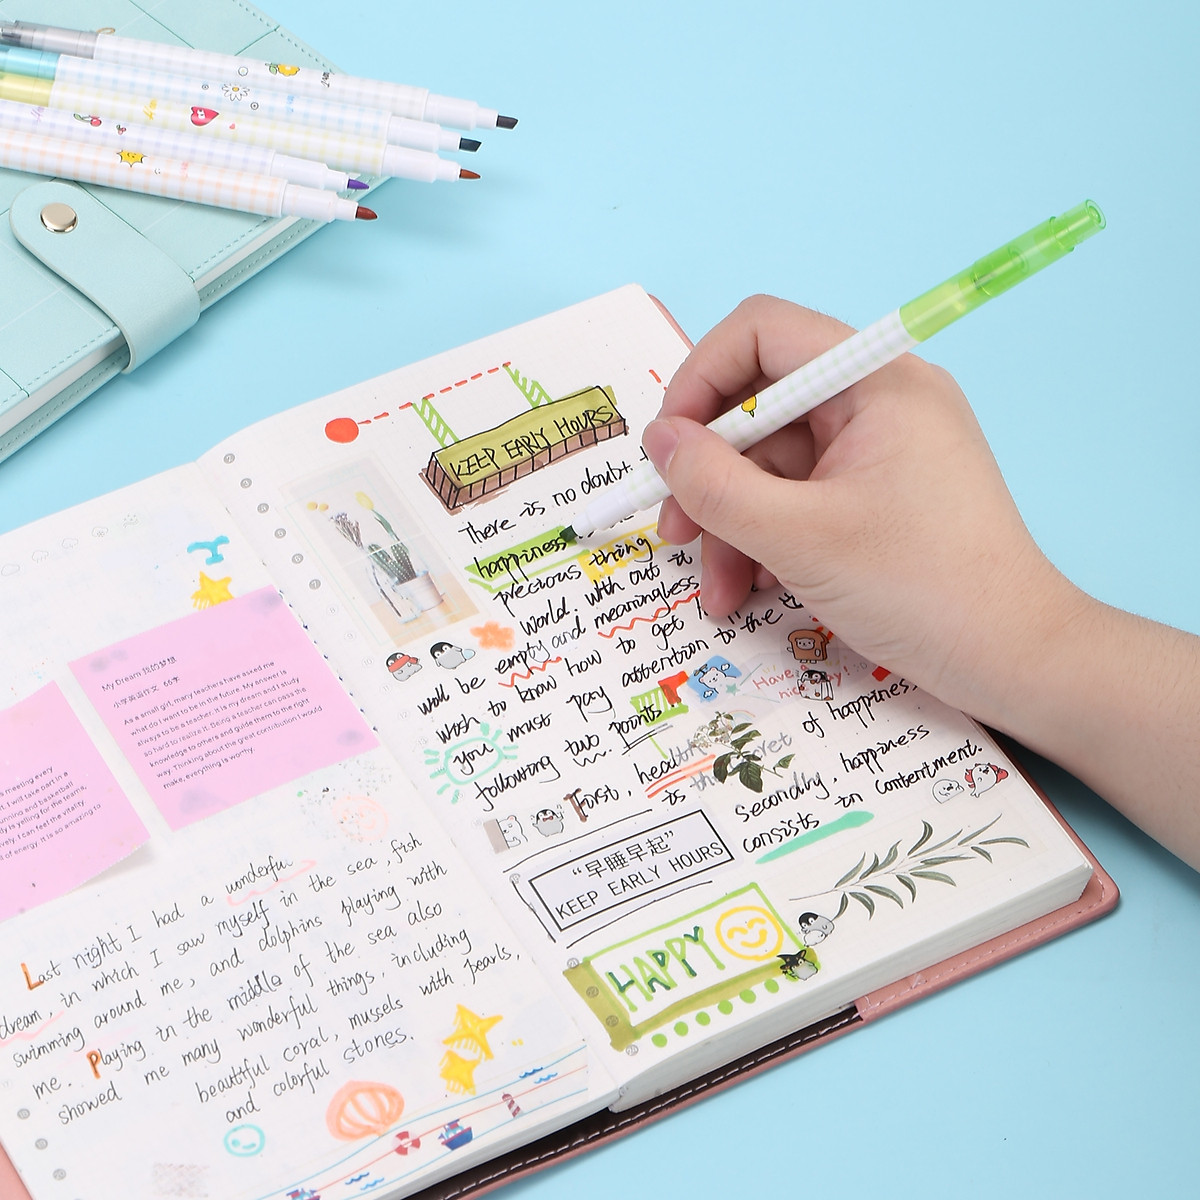 My Dream 我的梦想
小学英语作文
As a small girl, many teachers have asked me
what do I want to be in the future. My answer is
always to be a teacher. It is my dream and I study
so hard to realize it. Being a teacher can pass the
knowledge to others and guide them to the right
way. Thinking about the great contribution I would
make, everything is worthy.
meeting every
I will take part in a
running and basketball
is yelling for the teams,
I can feel the vitality
of energy. It is so amazing to
Last night I had a wonderful
dream, in which I saw myself in the sea, fish
swimming around me, and dolphins playing with
me. Playing in the middle of the sea also
showed me many wonderful things, including
beautiful coral, mussels with pearls,
and colorful stones.
KEEP EARLY HOURS
There is no doubt
happiness
precious thing
world. With out it
would be empty and meaningless
Wash to know how to get
you must pay attention to the
following two points
First, health
is the secret of happiness
Secondly, happiness
consists in contentment.
Have a
nice day!
“早睡早起”
KEEP EARLY HOURS
HAPPY